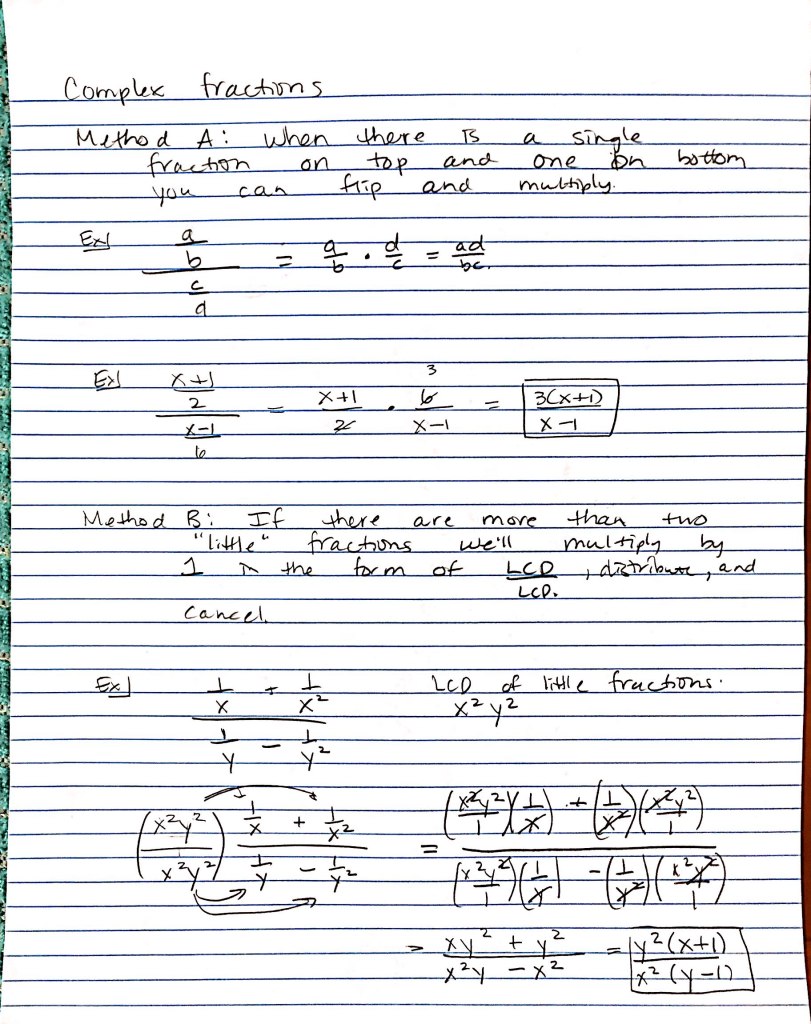 Complex fractions
Method A: When there is a single
fraction on top and one on bottom
you can flip and multiply.
Ex) (a/b)/(c/d) = a/b · d/c = ad/bc.
Ex) ((x+1)/2)/((x-1)/6) = (x+1)/2 · 6/(x-1) = 3(x+1)/(x-1)
3
Method B: If there are more than two
"little" fractions we'll multiply by
1 in the form of LCD/LCD. , distribute, and
cancel.
Ex) (1/x + 1/x²)/(1/y - 1/y²) LCD of little fractions.
x²y²
(x²y²/x²y²) (1/x + 1/x²)/(1/y - 1/y²) = ((x²y²/1)(1/x) + (1/x²)(x²y²/1))/((x²y²/1)(1/y) - (1/y²)(x²y²/1))
= (xy² + y²)/(x²y - x²) = y²(x+1)/x²(y-1)